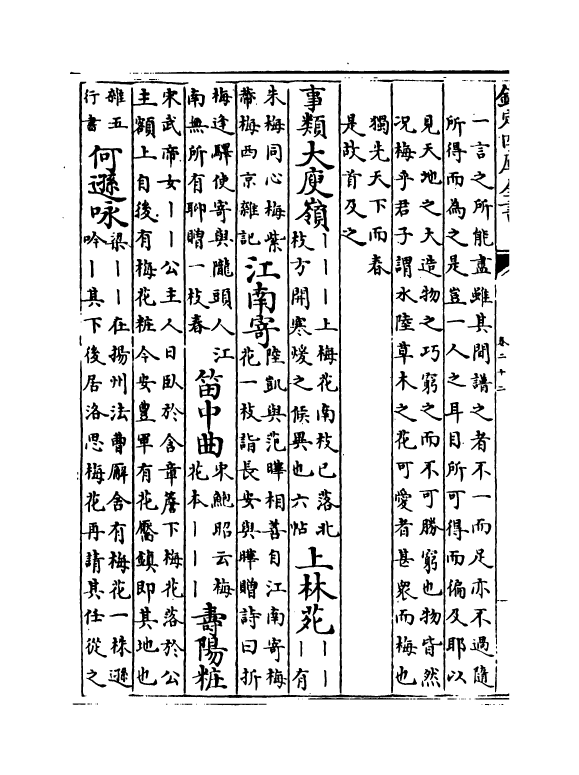 欽定四庫全書
卷二十二
一言之所能盡雖其間譜之者不一而足亦不過隨
所得而為之是豈一人之耳目所可得而徧及耶以
見天地之大造物之巧窮之而不可勝窮也物皆然
況梅乎君子謂水陸草木之花可愛者甚衆而梅也
獨先天下而春
是故首及之
事類大庾嶺丨丨丨上梅花南枝已落北枝方開寒煖之候異也六帖上林苑丨丨丨有
朱梅同心梅紫蔕梅西京雜記江南寄陸凱與范曄相善自江南寄梅花一枝詣長安與曄贈詩曰折
梅逢驛使寄與隴頭人江南無所有聊贈一枝春笛中曲宋鮑昭云梅花本丨丨丨壽陽粧
宋武帝女丨丨公主人日臥於含章簷下梅花落於公主額上自後有梅花粧今安豐軍有花靨鎮即其地也
雜五行書何遜咏梁丨丨在揚州法曹廨舍有梅花一株遜吟丨其下後居洛思梅花再請其任從之